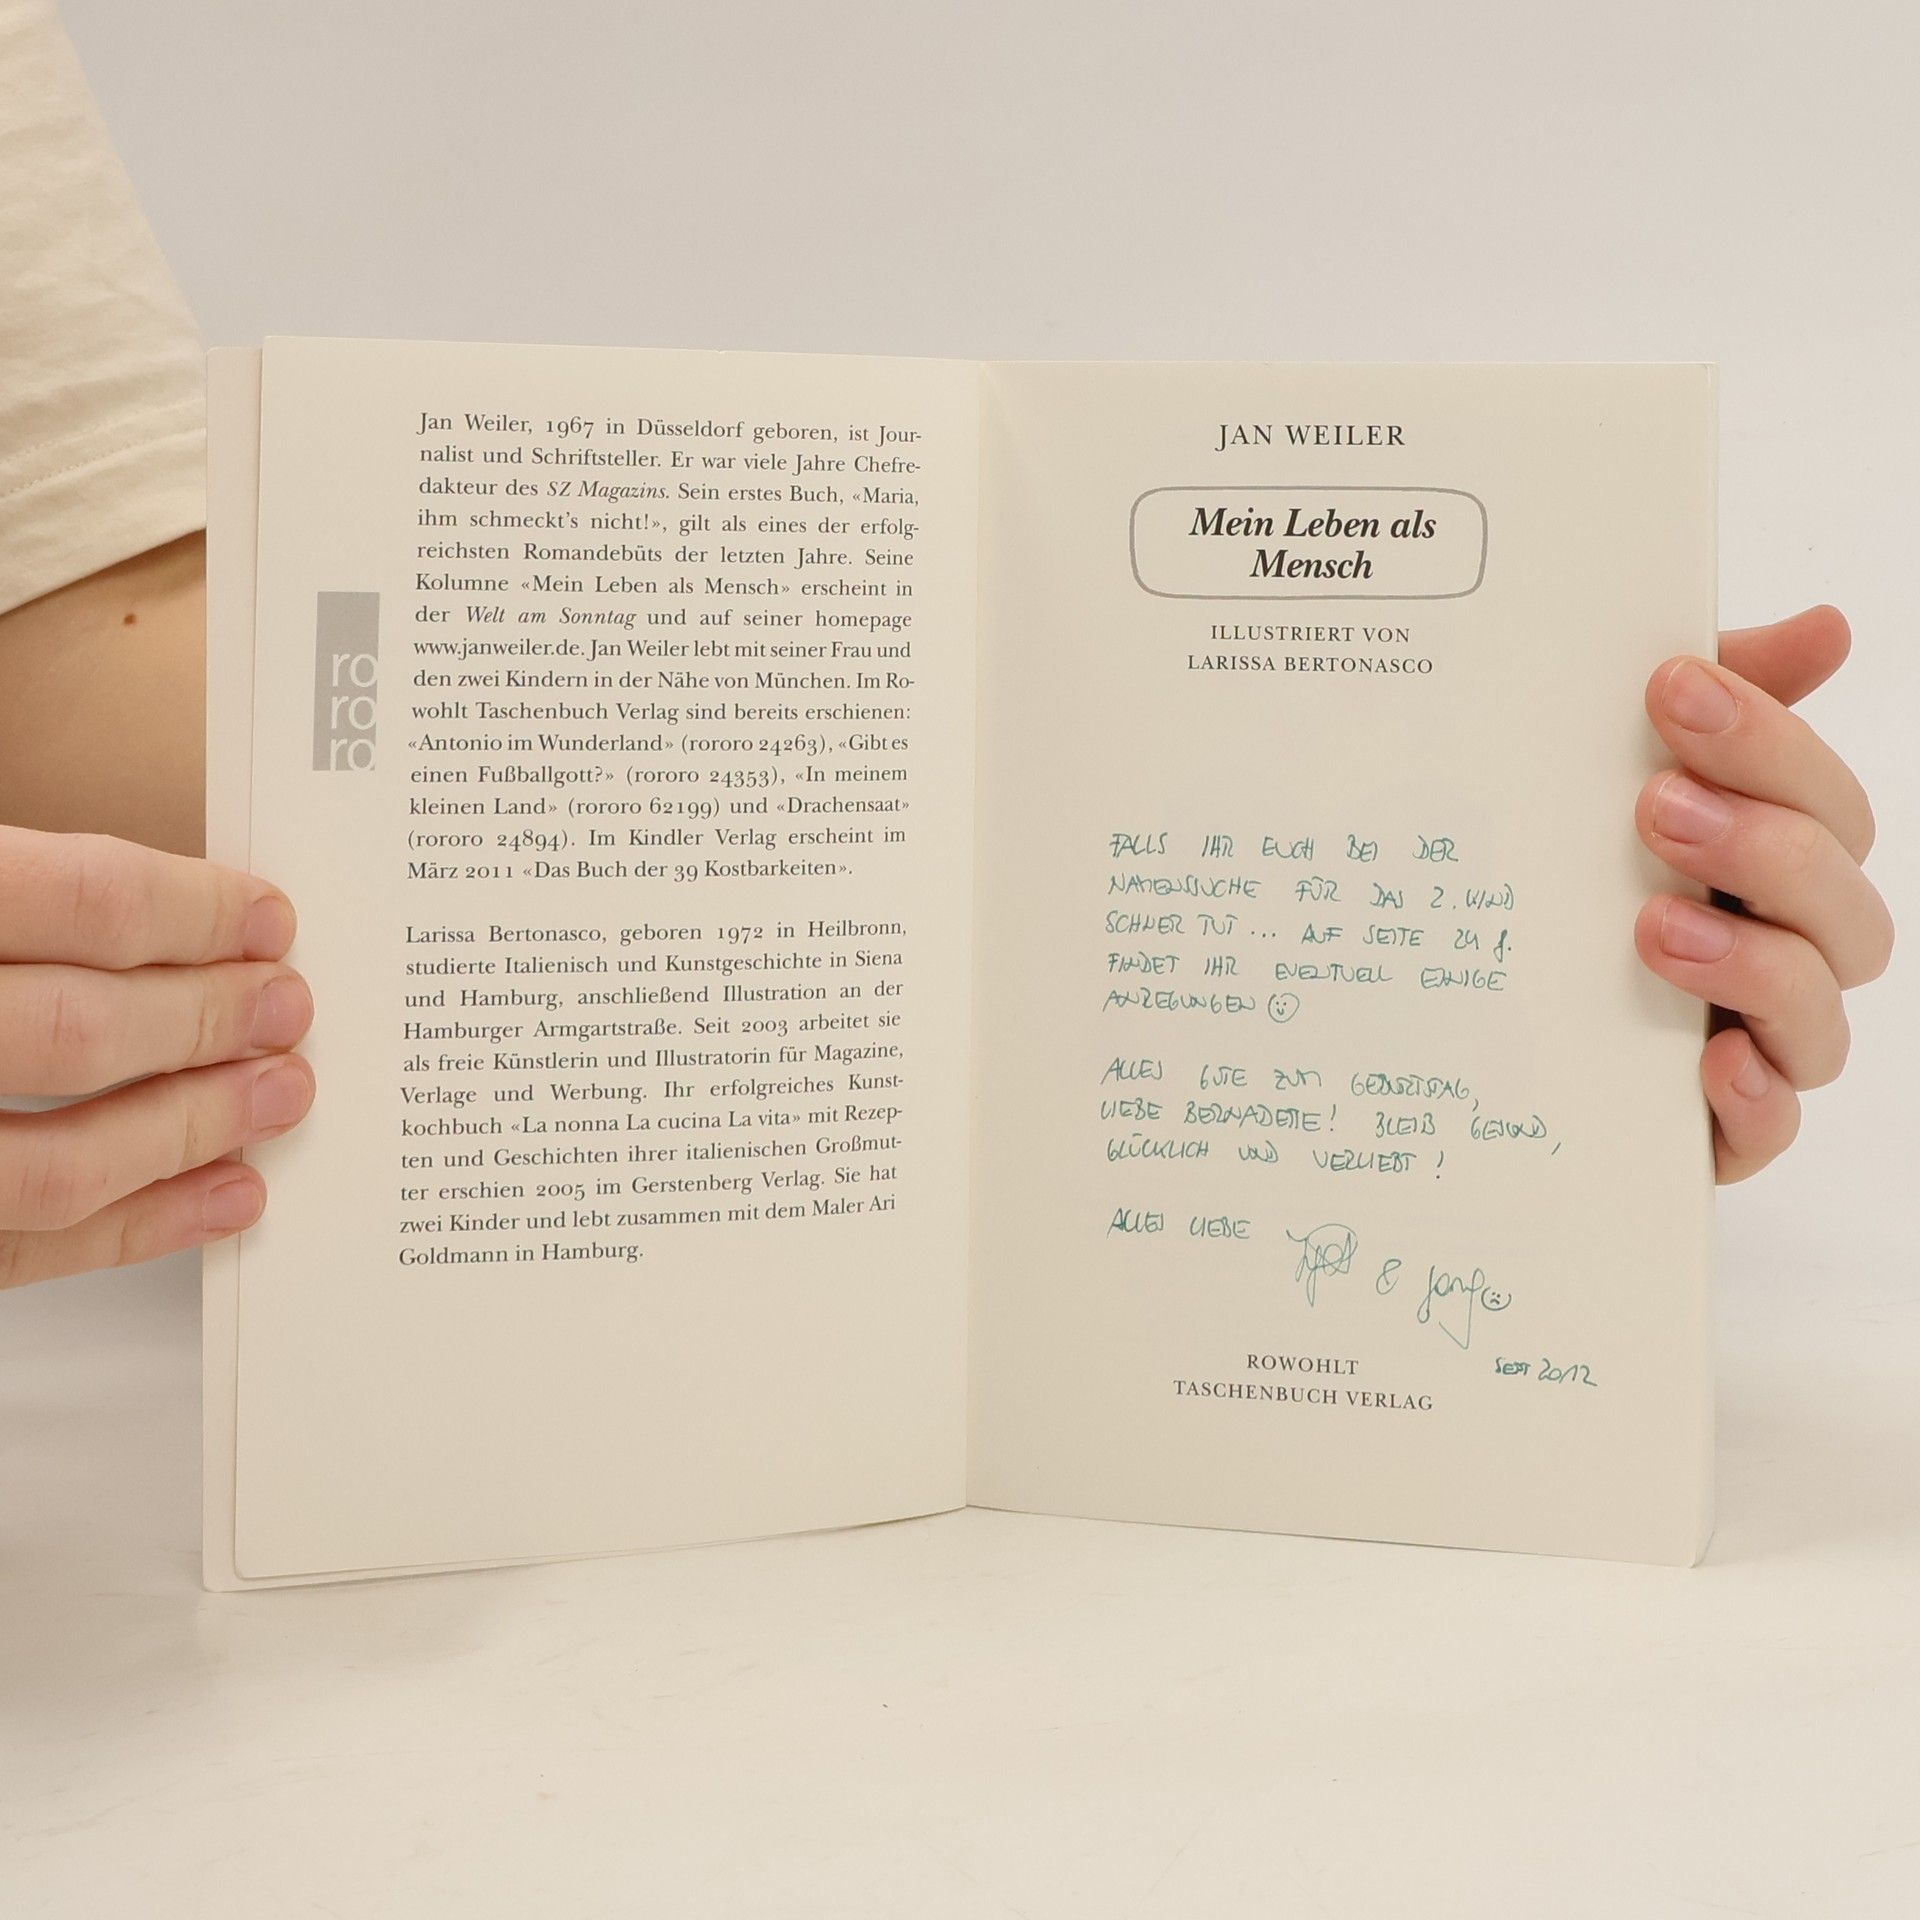 Jan Weiler, 1967 in Düsseldorf geboren, ist Jour-
nalist und Schriftsteller. Er war viele Jahre Chefre-
dakteur des SZ Magazins. Sein erstes Buch, «Maria,
ihm schmeckt's nicht!», gilt als eines der erfolg-
reichsten Romandebüts der letzten Jahre. Seine
Kolumne «Mein Leben als Mensch» erscheint in
der Welt am Sonntag und auf seiner homepage
www.janweiler.de. Jan Weiler lebt mit seiner Frau und
den zwei Kindern in der Nähe von München. Im Ro-
wohlt Taschenbuch Verlag sind bereits erschienen:
«Antonio im Wunderland» (rororo 24263), «Gibt es
einen Fußballgott?» (rororo 24353), «In meinem
kleinen Land» (rororo 62199) und «Drachensaat»
(rororo 24894). Im Kindler Verlag erscheint im
März 2011 «Das Buch der 39 Kostbarkeiten».
Larissa Bertonasco, geboren 1972 in Heilbronn,
studierte Italienisch und Kunstgeschichte in Siena
und Hamburg, anschließend Illustration an der
Hamburger Armgartstraße. Seit 2003 arbeitet sie
als freie Künstlerin und Illustratorin für Magazine,
Verlage und Werbung. Ihr erfolgreiches Kunst-
kochbuch «La nonna La cucina La vita» mit Rezep-
ten und Geschichten ihrer italienischen Großmut-
ter erschien 2005 im Gerstenberg Verlag. Sie hat
zwei Kinder und lebt zusammen mit dem Maler Ari
Goldmann in Hamburg.
ro
ro
ro
JAN WEILER
Mein Leben als
Mensch
ILLUSTRIERT VON
LARISSA BERTONASCO
FALLS IHR EUCH BEI DER
NAMENSSUCHE FÜR DAS 2. KIND
SCHWER TUT ... AUF SEITE 24 f.
FINDET IHR EVENTUELL EINIGE
ANREGUNGEN
ALLES GUTE ZUM GEBURTSTAG,
LIEBE BERNADETTE! BLEIB GESUND,
GLÜCKLICH UND VERLIEBT!
ALLES LIEBE
&
SEPT 2012
ROWOHLT
TASCHENBUCH VERLAG